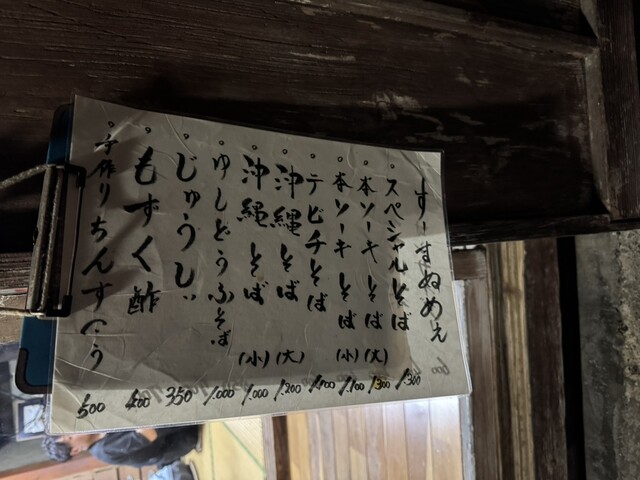 すーまぬめぇ
。スペシャルそば 1.300
。本ソーキそば (大) 1.300
。本ソーキそば (小) 1.100
。テビチそば
。沖縄そば (大) 1.200
。沖縄そば (小) 1.000
。ゆしどうふそば 1.000
。じゅうしぃ 350
。もずく酢 400
。手作りちんすこう 500